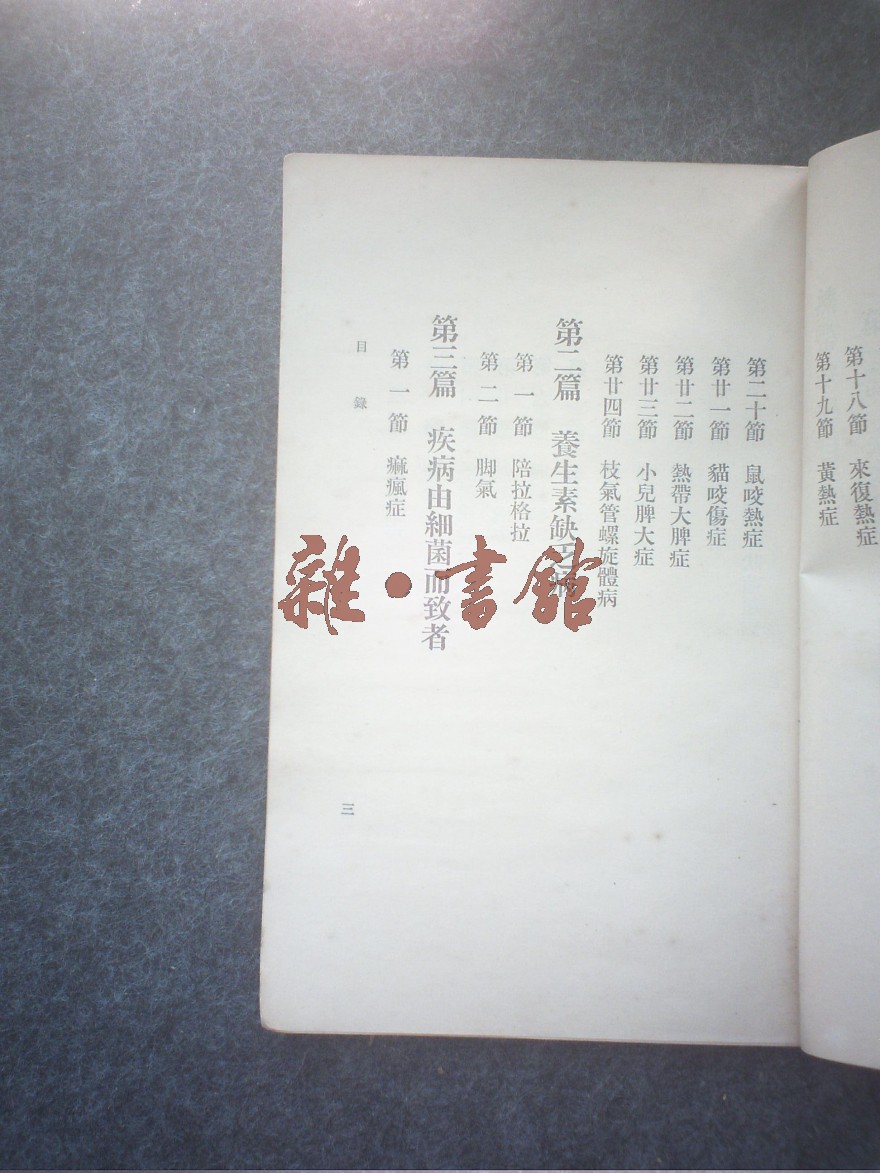 第十八節　來復熱症
第十九節　黃熱症
第二十節　鼠咬熱症
第廿一節　貓咬傷症
第廿二節　熱帶大脾症
第廿三節　小兒脾大症
第廿四節　枝氣管螺旋體病
第二篇　養生素缺乏病
第一節　陪拉格拉
第二節　脚氣
第三篇　疾病由細菌而致者
第一節　痲瘋症
目錄
三
雜·書館